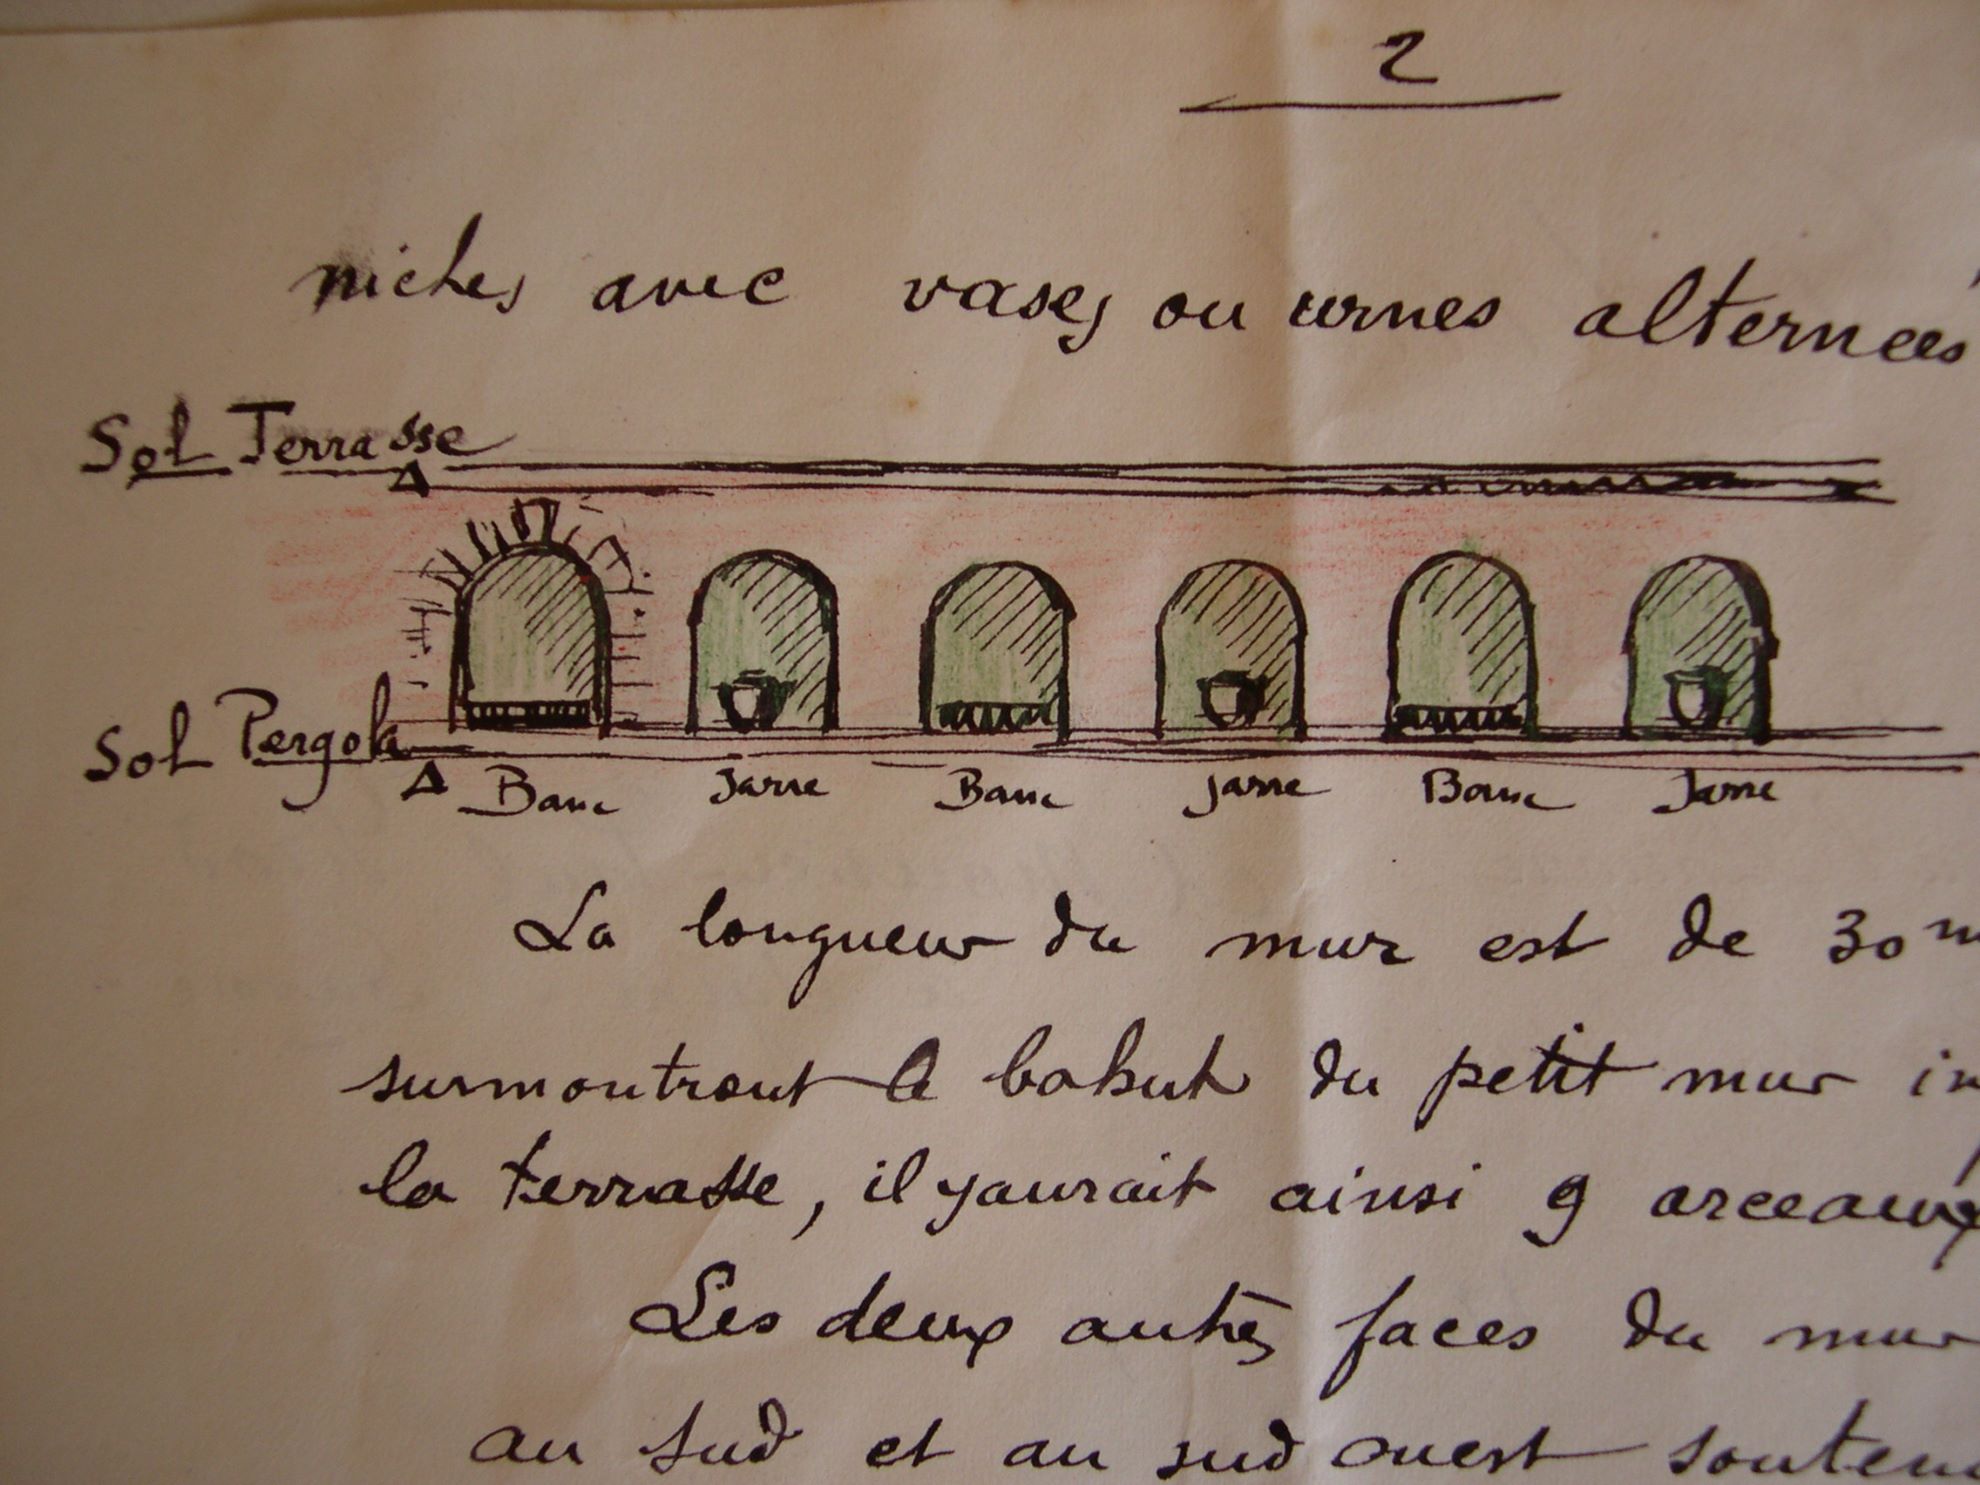 2
niches avec vases ou urnes alternées
Sol Terrasse
Sol Pergola
Banc Jarre Banc Jarre Banc Jarre
La longueur du mur est de 30 m
surmontrant le bahut du petit mur
la terrasse, il y aurait ainsi 9 arceaux
Les deux autres faces du mur
au sud et au sud ouest